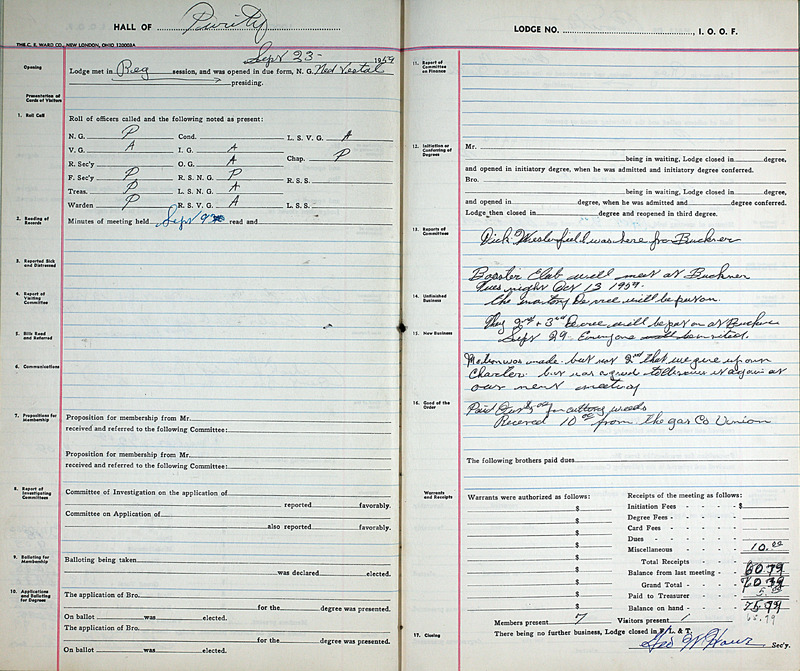 HALL OF Purity
THE C. E. WARD CO., NEW LONDON, OHIO 32000BA
Sept 23- 1959
Opening
Lodge met in Reg session, and was opened in due form, N. G. Ned Vestal
presiding.
Presentation of Cards of Visitors
1. Roll Call
Roll of officers called and the following noted as present:
N. G. P Cond. L. S. V. G. A
V. G. A I. G. A
R. Sec'y O. G. A Chap. P
F. Sec'y P R. S. N. G. P R. S. S.
Treas. P L. S. N. G. A
Warden P R. S. V. G. A L. S. S.
2. Reading of Records
Minutes of meeting held Sept 9 read and
3. Reported Sick and Distressed
4. Report of Visiting Committee
5. Bills Read and Referred
6. Communications
7. Propositions for Membership
Proposition for membership from Mr.
received and referred to the following Committee:
Proposition for membership from Mr.
received and referred to the following Committee:
8. Report of Investigating Committees
Committee of Investigation on the application of
reported favorably.
Committee on Application of
also reported favorably.
9. Balloting for Membership
Balloting being taken
was declared elected.
10. Applications and Balloting for Degrees
The application of Bro.
for the degree was presented.
On ballot was elected.
The application of Bro.
for the degree was presented.
On ballot was elected.
LODGE NO. , I. O. O. F.
11. Report of Committee on Finance
12. Initiation or Conferring of Degrees
Mr.
being in waiting, Lodge closed in degree,
and opened in initiatory degree, when he was admitted and initiatory degree conferred.
Bro.
being in waiting, Lodge closed in degree,
and opened in degree, when he was admitted and degree conferred.
Lodge then closed in degree and reopened in third degree.
13. Reports of Committees
Dick Westerfield was here from Buckner
Booster Club will meet at Buckner
Tues night Oct 13 1959.
14. Unfinished Business
the initory Degree will be put on.
They 2nd + 3rd Degree will be put on at Buckner
15. New Business
Sept 29. Everyone invited.
Motion was made but not 2nd that we give up our
Charter. but was agreed to discuss it again at
our next meeting
16. Good of the Order
Paid for cutting weeds
Received 10.00 from the gas Co Union
The following brothers paid dues
Warrants and Receipts
Warrants were authorized as follows:
$
$
$
$
$
$
$
$
$
Receipts of the meeting as follows:
Initiation Fees - $
Degree Fees -
Card Fees -
Dues -
Miscellaneous 10.00
Total Receipts
Balance from last meeting - 60.79
Grand Total - 70.79
Paid to Treasurer 5.00
Balance on hand - 75.79
65.79
Members present 7 Visitors present 1
17. Closing
There being no further business, Lodge closed in F. L. & T.
Sec'y.